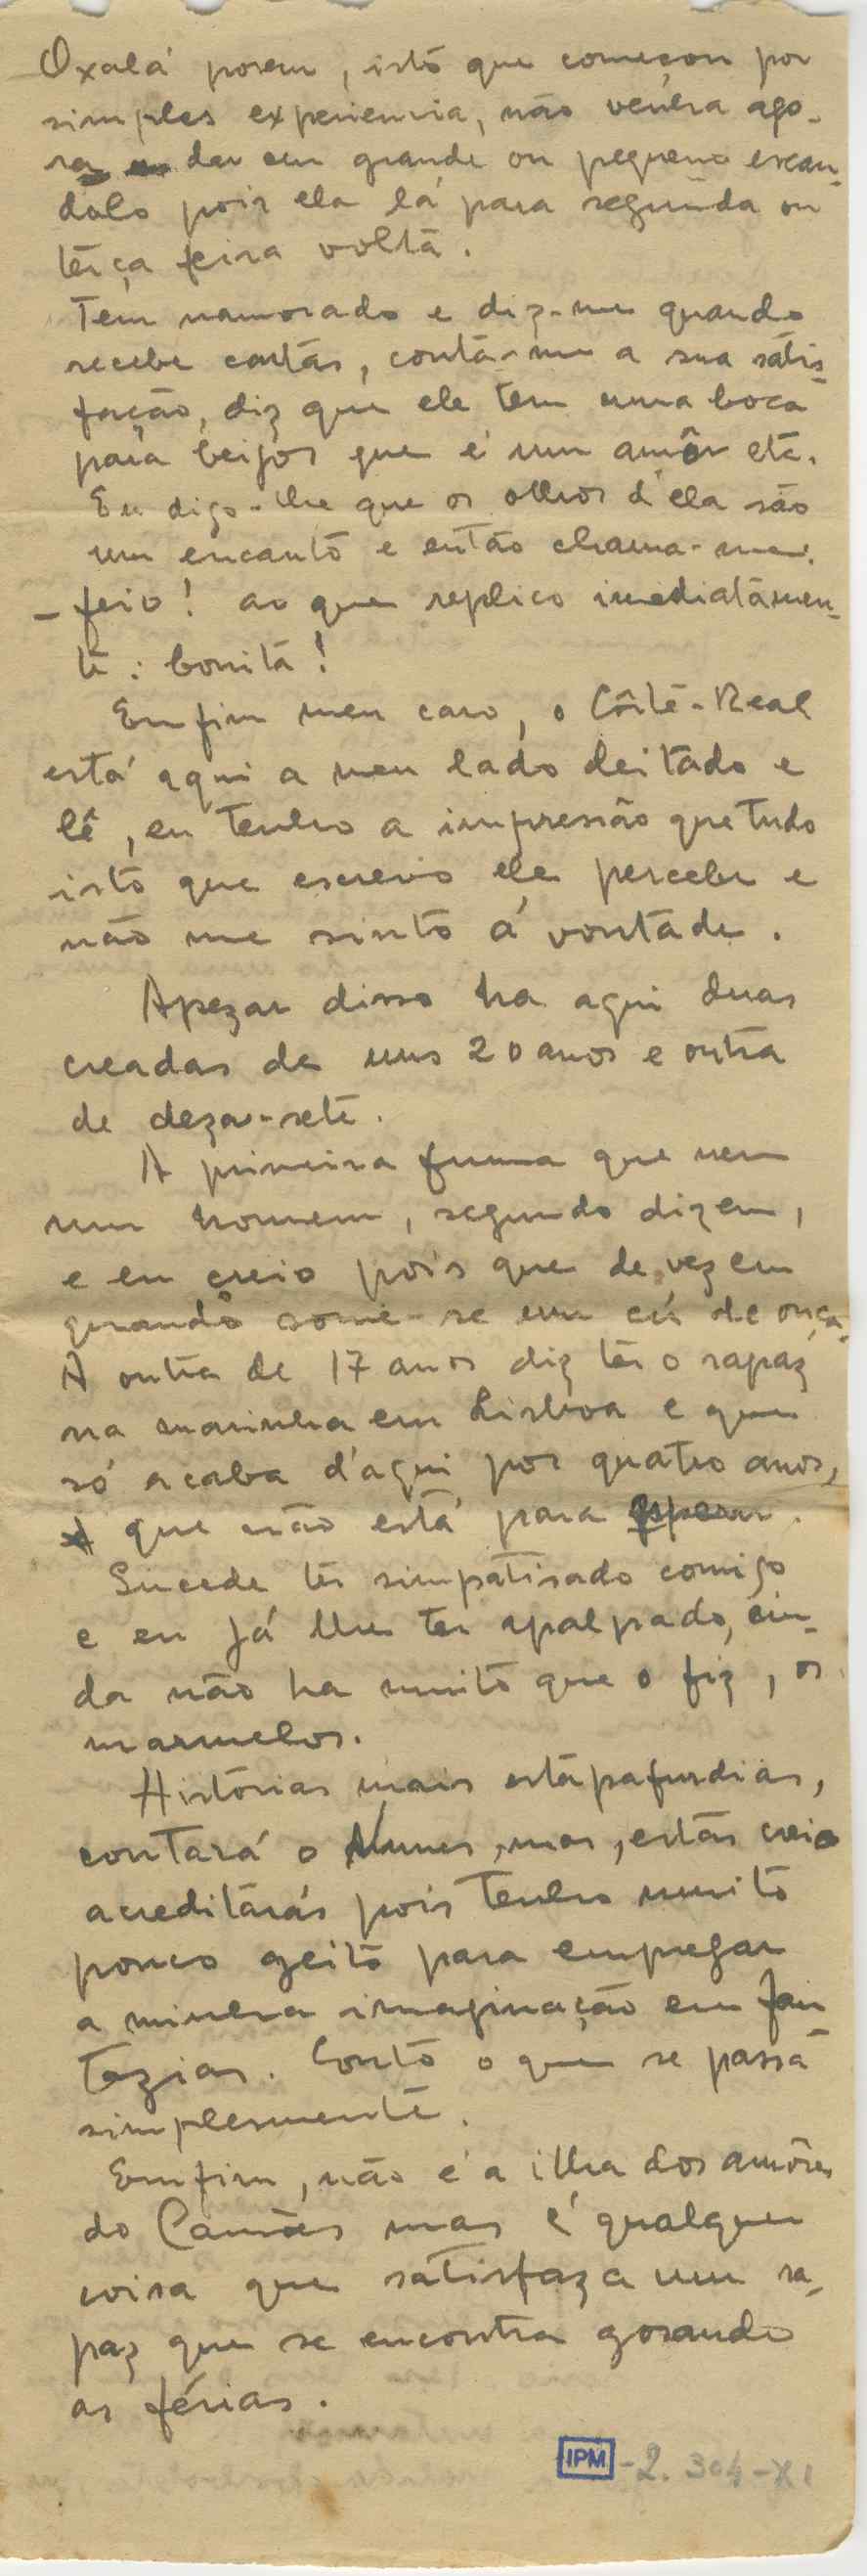 Oxalá porem, isto que começou por
simples experiencia, não venha ago-
ra dar em grande ou pequeno escan-
dalo pois ela lá para segunda ou
têrça feira volta.
Tem namorado e diz-me quando
recebe cartas, conta-me a sua satis-
fação, diz que ele tem uma boca
para beijos que é um amôr etc.
Eu digo-lhe que os olhos d'ela são
um encanto e então chama-me:
- feio! ao que replico imediatamen-
te: bonita!
Emfim meu caro, o Côrte-Real
está aqui a meu lado deitado e
lê, eu tenho a impressão que tudo
isto que escrevo ele percebe e
não me sinto á vontade.
Apezar disso ha aqui duas
creadas de uns 20 anos e outra
de deza-sete.
A primeira fuma que nem
um homem, segundo dizem,
e eu creio pois que de vez em
quando some-se um cú de onça.
A outra de 17 anos diz ter o rapaz
na marinha em Lisboa e que
só acaba d'aqui por quatro anos,
que não está para esperar.
Sucede ter simpatisado comigo
e eu já lhe ter apalpado, ain-
da não ha muito que o fiz, os
marmelos.
Histórias mais estapafurdias,
contará o Nunes, mas, estas creio
acreditarás pois tenho muito
pouco geito para empregar
a minha imaginação em fan-
tazias. Conto o que se passa
simplesmente.
Emfim, não é a ilha dos amôres
do Camões mas é qualquer
coisa que satisfaza um ra-
paz que se encontra gosando
as férias.
IPM - 2. 304-XI